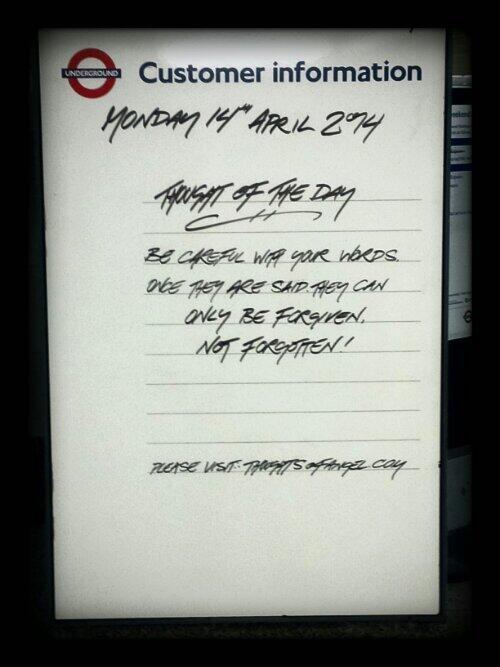 UNDERGROUND
Customer information
MONDAY 14TH APRIL 2014
THOUGHT OF THE DAY
BE CAREFUL WITH YOUR WORDS.
ONCE THEY ARE SAID. THEY CAN
ONLY BE FORGIVEN.
NOT FORGOTTEN!
PLEASE VISIT. THOUGHTSOFANGEL.COM